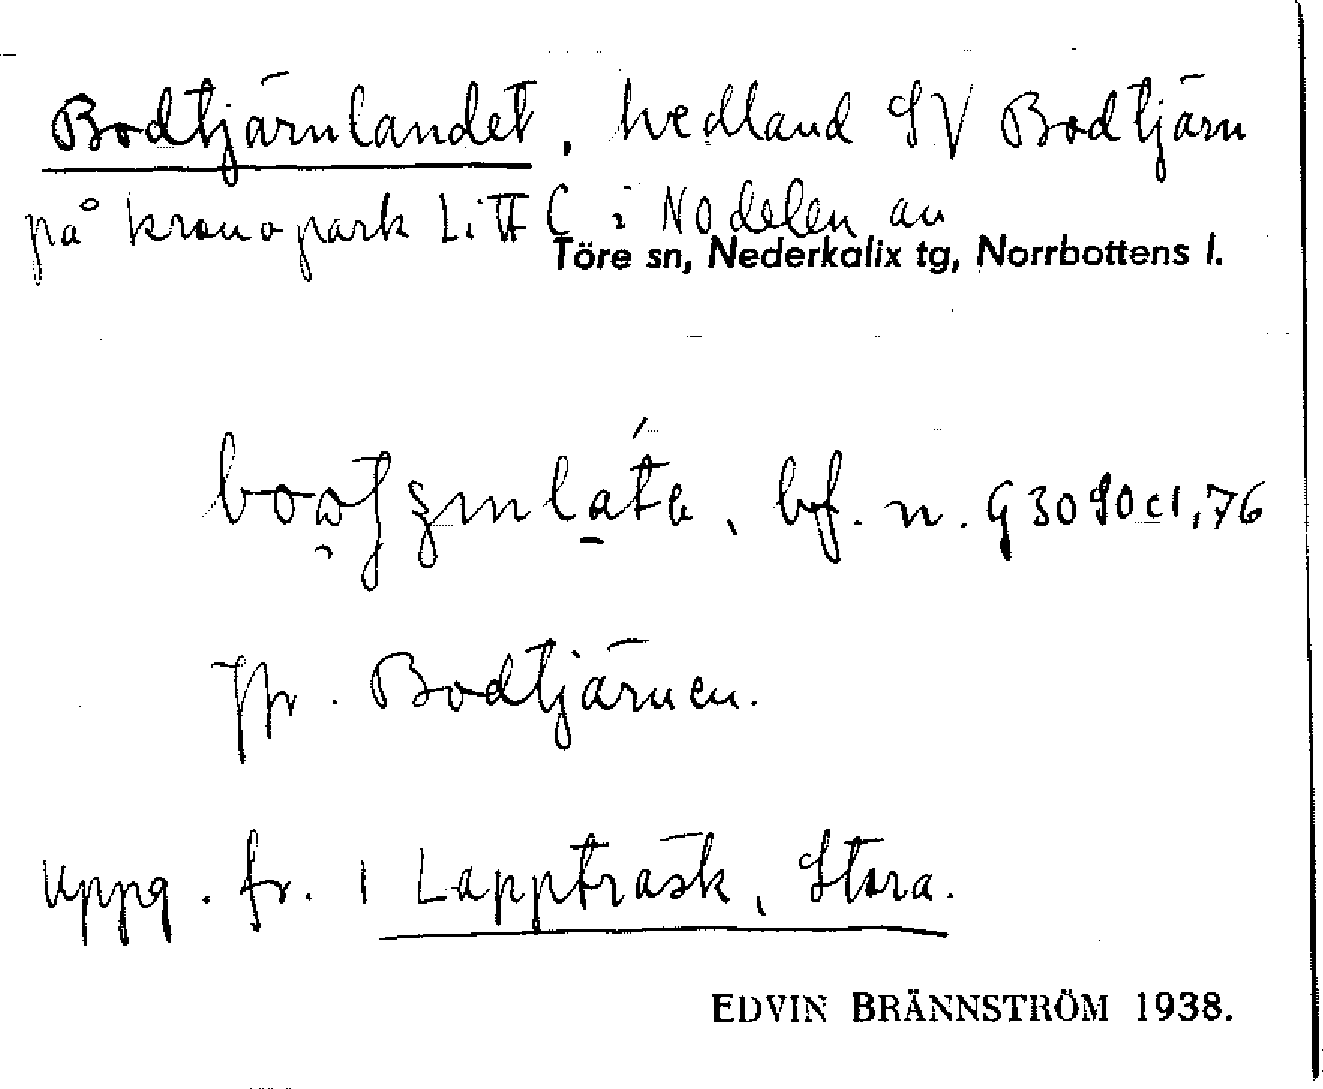 Bodtjärnlandet, hedland SV Bodtjärn
på kronopark Litt C i NO delen av
Töre sn, Nederkalix tg, Norrbottens l.
bf. n. G 30 90 c1, 76
Jfr. Bodtjärnen.
Uppg. fr. 1 Lappträsk, Stora.
EDVIN BRÄNNSTRÖM 1938.